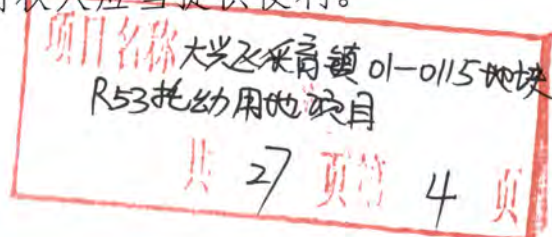 应当提供便利。
项目名称 大兴区采育镇01-0115地块
R53托幼用地项目
共 27 页第 4 页